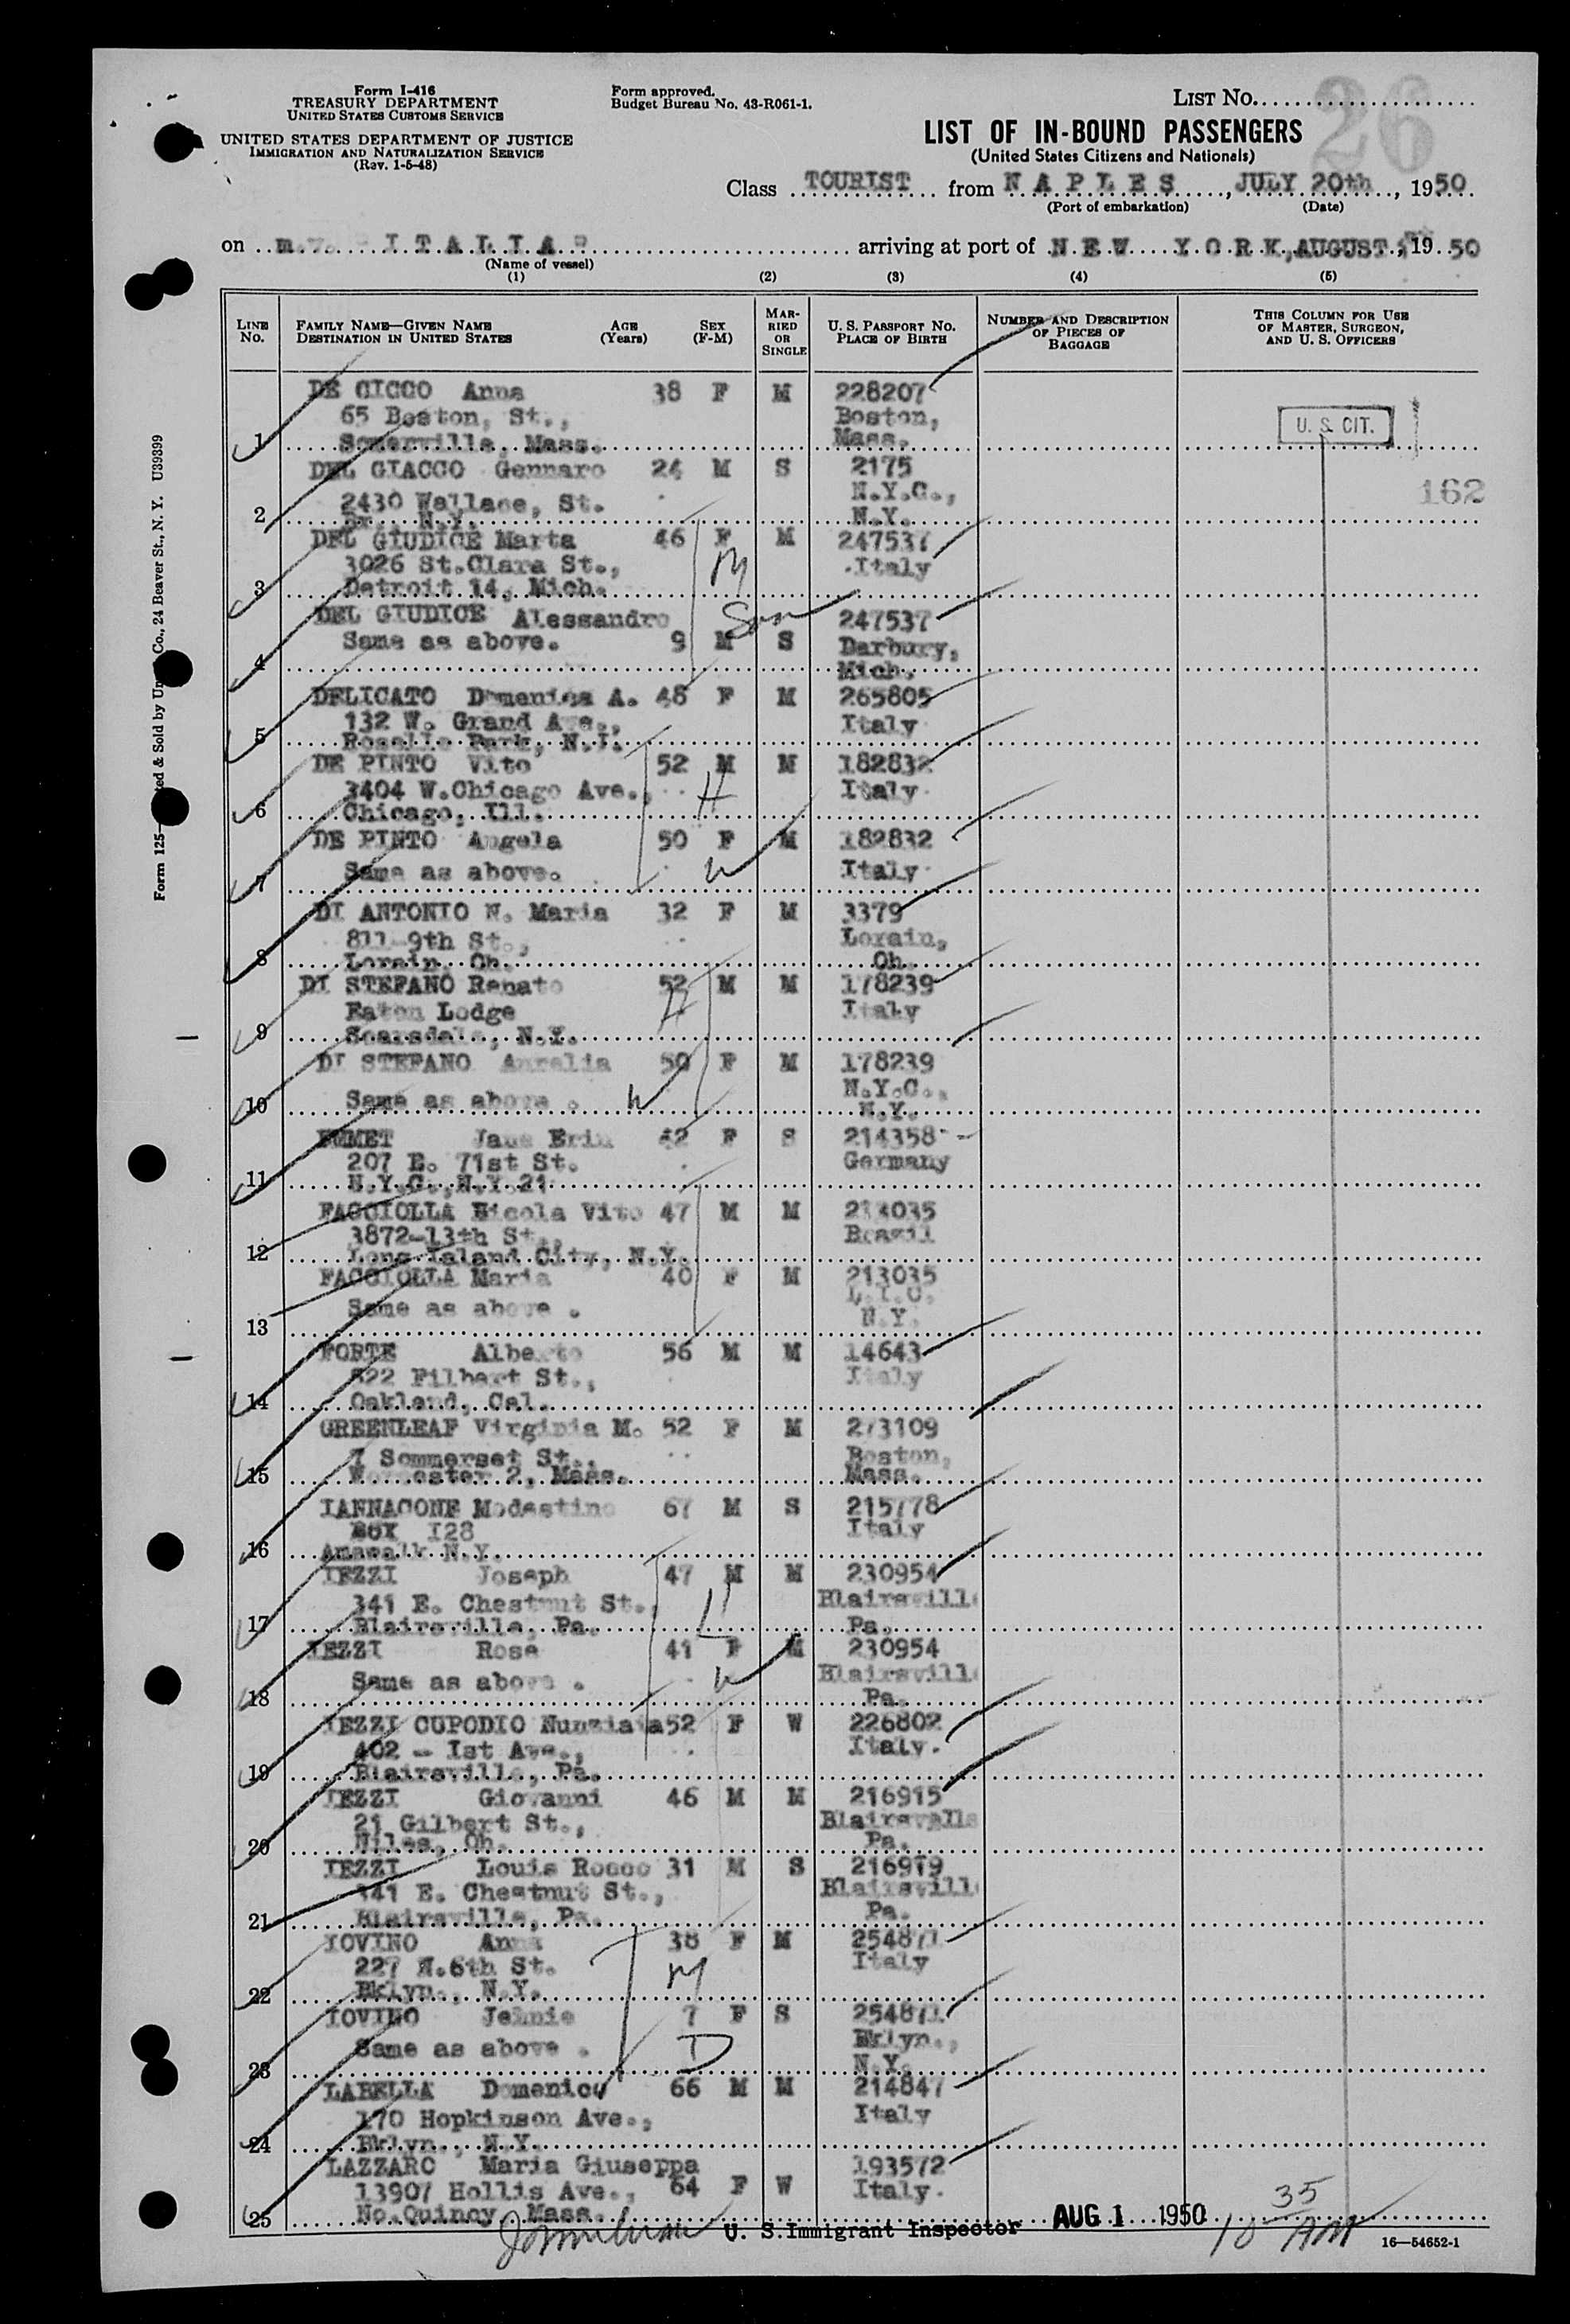 Form I-416
TREASURY DEPARTMENT
UNITED STATES CUSTOMS SERVICE
UNITED STATES DEPARTMENT OF JUSTICE
IMMIGRATION AND NATURALIZATION SERVICE
(Rev. 1-5-48)
Form approved.
Budget Bureau No. 43-R061-1.
LIST No.
26
LIST OF IN-BOUND PASSENGERS
(United States Citizens and Nationals)
Class TOURIST from NAPLES, JULY 20th, 1950
(Port of embarkation) (Date)
on m.v. "ITALIA" arriving at port of NEW YORK, AUGUST 1st, 1950
(Name of vessel)
(1) (2) (3) (4) (5)
LINE No. FAMILY NAME—GIVEN NAME DESTINATION IN UNITED STATES AGE (Years) SEX (F-M) MARRIED OR SINGLE U. S. PASSPORT NO. PLACE OF BIRTH NUMBER AND DESCRIPTION OF PIECES OF BAGGAGE THIS COLUMN FOR USE OF MASTER, SURGEON, AND U. S. OFFICERS
DE CICCO Anna 38 F M 228207
65 Boston, St., Boston,
1 Somerville, Mass. Mass. U. S. CIT.
DEL GIACCO Gennaro 24 M S 2175
2430 Wallace, St. N.Y.C., 162
2 Bx., N.Y. N.Y.
DEL GIUDICE Marta 46 F M 247537
3026 St.Clara St., M Italy
3 Detroit 14, Mich.
DEL GIUDICE Alessandro Son 247537
Same as above. 9 M S Darbury,
4 Mich.
DELICATO Domenica A. 48 F M 265805
132 W. Grand Ave., Italy
5 Roselle Park, N.J.
DE PINTO Vito 52 M M 182832
3404 W.Chicago Ave., H Italy
6 Chicago, Ill.
DE PINTO Angela 50 F M 182832
7 Same as above. W Italy
DI ANTONIO N. Maria 32 F M 3379
811-9th St., Lorain,
8 Lorain, Oh. Oh.
DI STEFANO Renato 52 M M 178239
Eaton Lodge H Italy
9 Scarsdale, N.Y.
DI STEFANO Aurelia 50 F M 178239
Same as above . W N.Y.C.,
10 N.Y.
EMMET Jane Erin 42 F S 214358
207 E. 71st St. Germany
11 N.Y.C., N.Y.21
FACCIOLLA Nicola Vito 47 M M 213035
3872-13th St., Brazil
12 Long Island City, N.Y.
FACCIOLLA Maria 40 F M 213035
Same as above . L.I.C.
13 N.Y.
FORTE Alberto 56 M M 14643
822 Filbert St., Italy
14 Oakland, Cal.
GREENLEAF Virginia M. 52 F M 273109
7 Sommerset St., Boston,
15 Worcester 2, Mass. Mass.
IANNACONE Modestino 67 M S 215778
BOX I28 Italy
16 Amawalk N.Y.
IEZZI Joseph 47 M M 230954
341 E. Chestnut St., H Blairsvill
17 Blairsville, Pa. Pa.
IEZZI Rose 41 F M 230954
Same as above . W Blairsvill
18 Pa.
IEZZI CUPODIO Nunziata 52 F W 226802
402 - Ist Ave., Italy.
19 Blairsville, Pa.
IEZZI Giovanni 46 M M 216915
21 Gilbert St., Blairsvella
20 Niles, Oh. Pa.
IEZZI Louis Rocco 31 M S 216979
341 E. Chestnut St., Blairsvill
21 Blairsville, Pa. Pa.
IOVINO Anna 38 F M 254871
227 N.6th St. M Italy
22 Bklyn., N.Y.
IOVINO Jennie 7 F S 254871
Same as above . D Bklyn.,
23 N.Y.
LABELLA Domenico 66 M M 214847
170 Hopkinson Ave., Italy
24 Bklyn., N.Y.
LAZZARO Maria Giuseppa 193572
13907 Hollis Ave., 64 F W Italy.
25 No.Quincy, Mass.
U. S. Immigrant Inspector AUG 1 1950 10 35 AM
16—54652-1
Form 125— Co., 24 Beaver St., N. Y. U39399